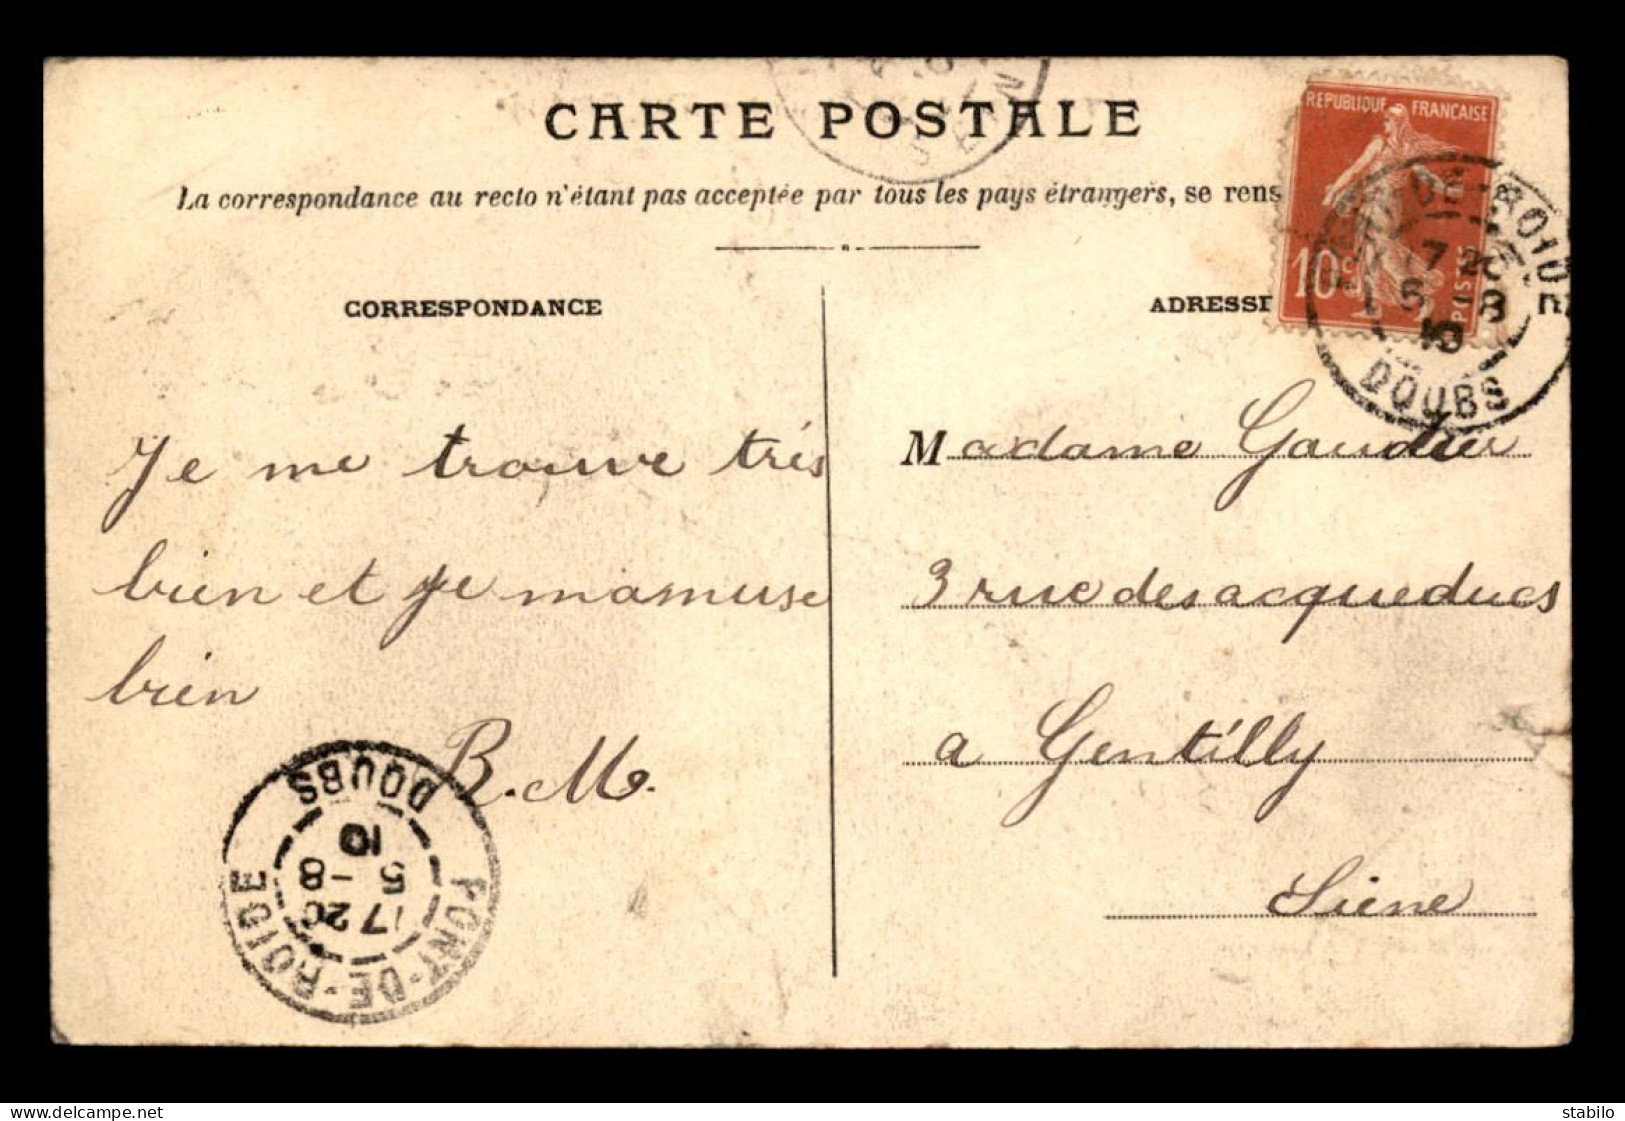 CARTE POSTALE
La correspondance au recto n'étant pas acceptée par tous les pays étrangers, se rens
CORRESPONDANCE
Je me trouve très
bien et je mamuse
bien
B. M.
PONT-DE-ROIDE
17 20
5 - 8
10
DOUBS
SEIN
REPUBLIQUE FRANÇAISE
10c
POSTES
ROIDE
5 - 8
10
DOUBS
ADRESSE
Madame Gaudier
3 rue des acqueducs
a Gentilly
Siene
delcampe.net
stabilo